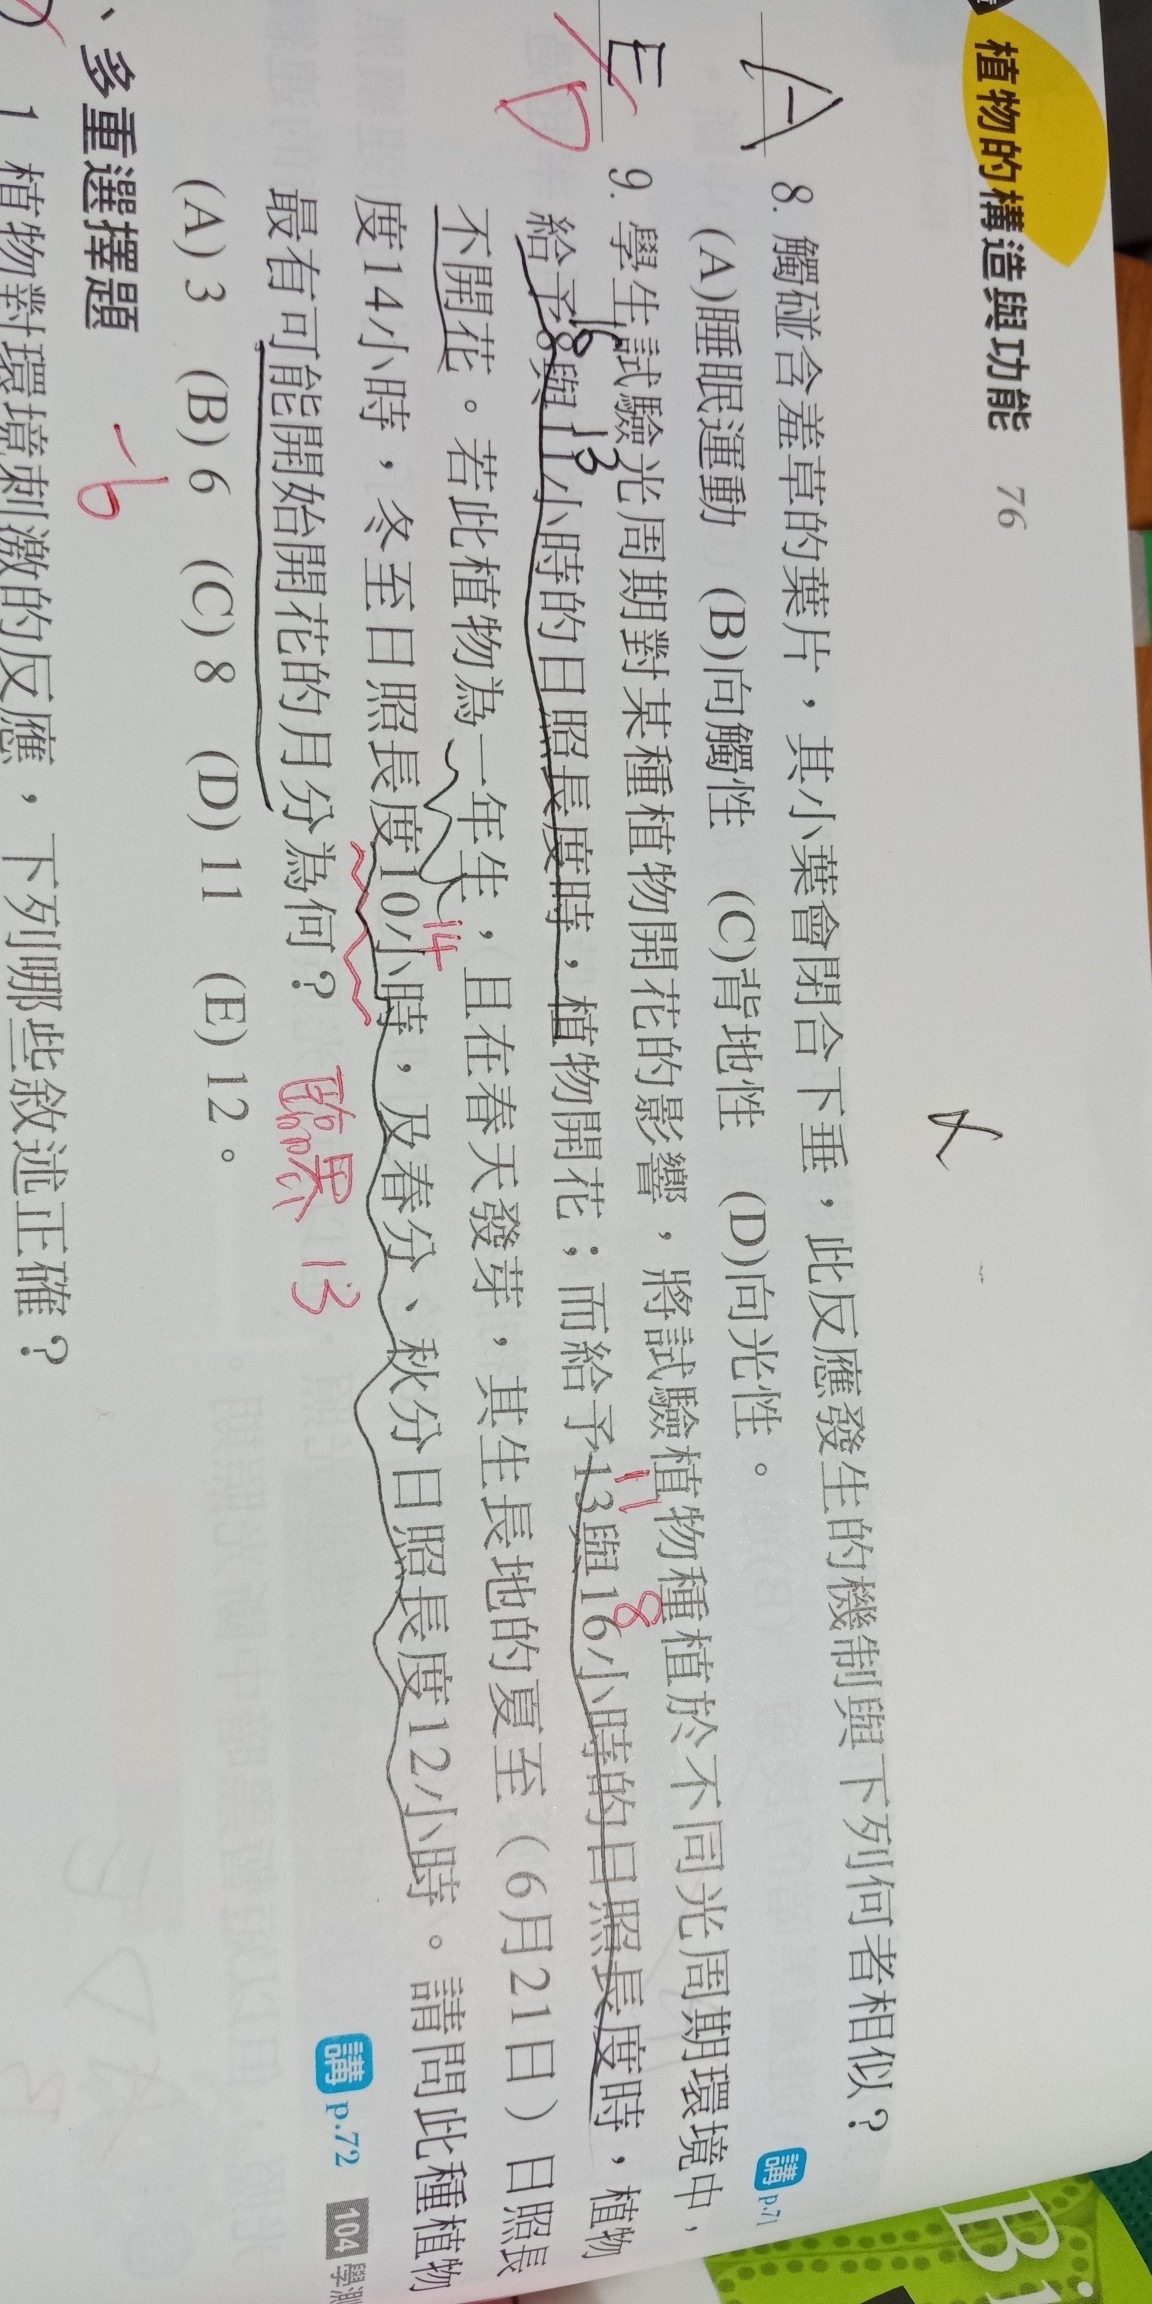 植物的構造與功能 76
A
8. 觸碰含羞草的葉片，其小葉會閉合下垂，此反應發生的機制與下列何者相似？
講 p.71
(A)睡眠運動 (B)向觸性 (C)背地性 (D)向光性。
E
D
9. 學生試驗光周期對某種植物開花的影響，將試驗植物種植於不同光周期環境中，
16 13 11 8
給予8與11小時的日照長度時，植物開花；而給予13與16小時的日照長度時，植物
不開花。若此植物為一年生，且在春天發芽，其生長地的夏至（6月21日）日照長
14
度14小時，冬至日照長度10小時，及春分、秋分日照長度12小時。請問此種植物
最有可能開始開花的月分為何？ 臨界 13
講 p.72 104 學測
(A) 3 (B) 6 (C) 8 (D) 11 (E) 12。
、多重選擇題 -6
1 植物對環境刺激的反應，下列哪些敘述正確？
Bi